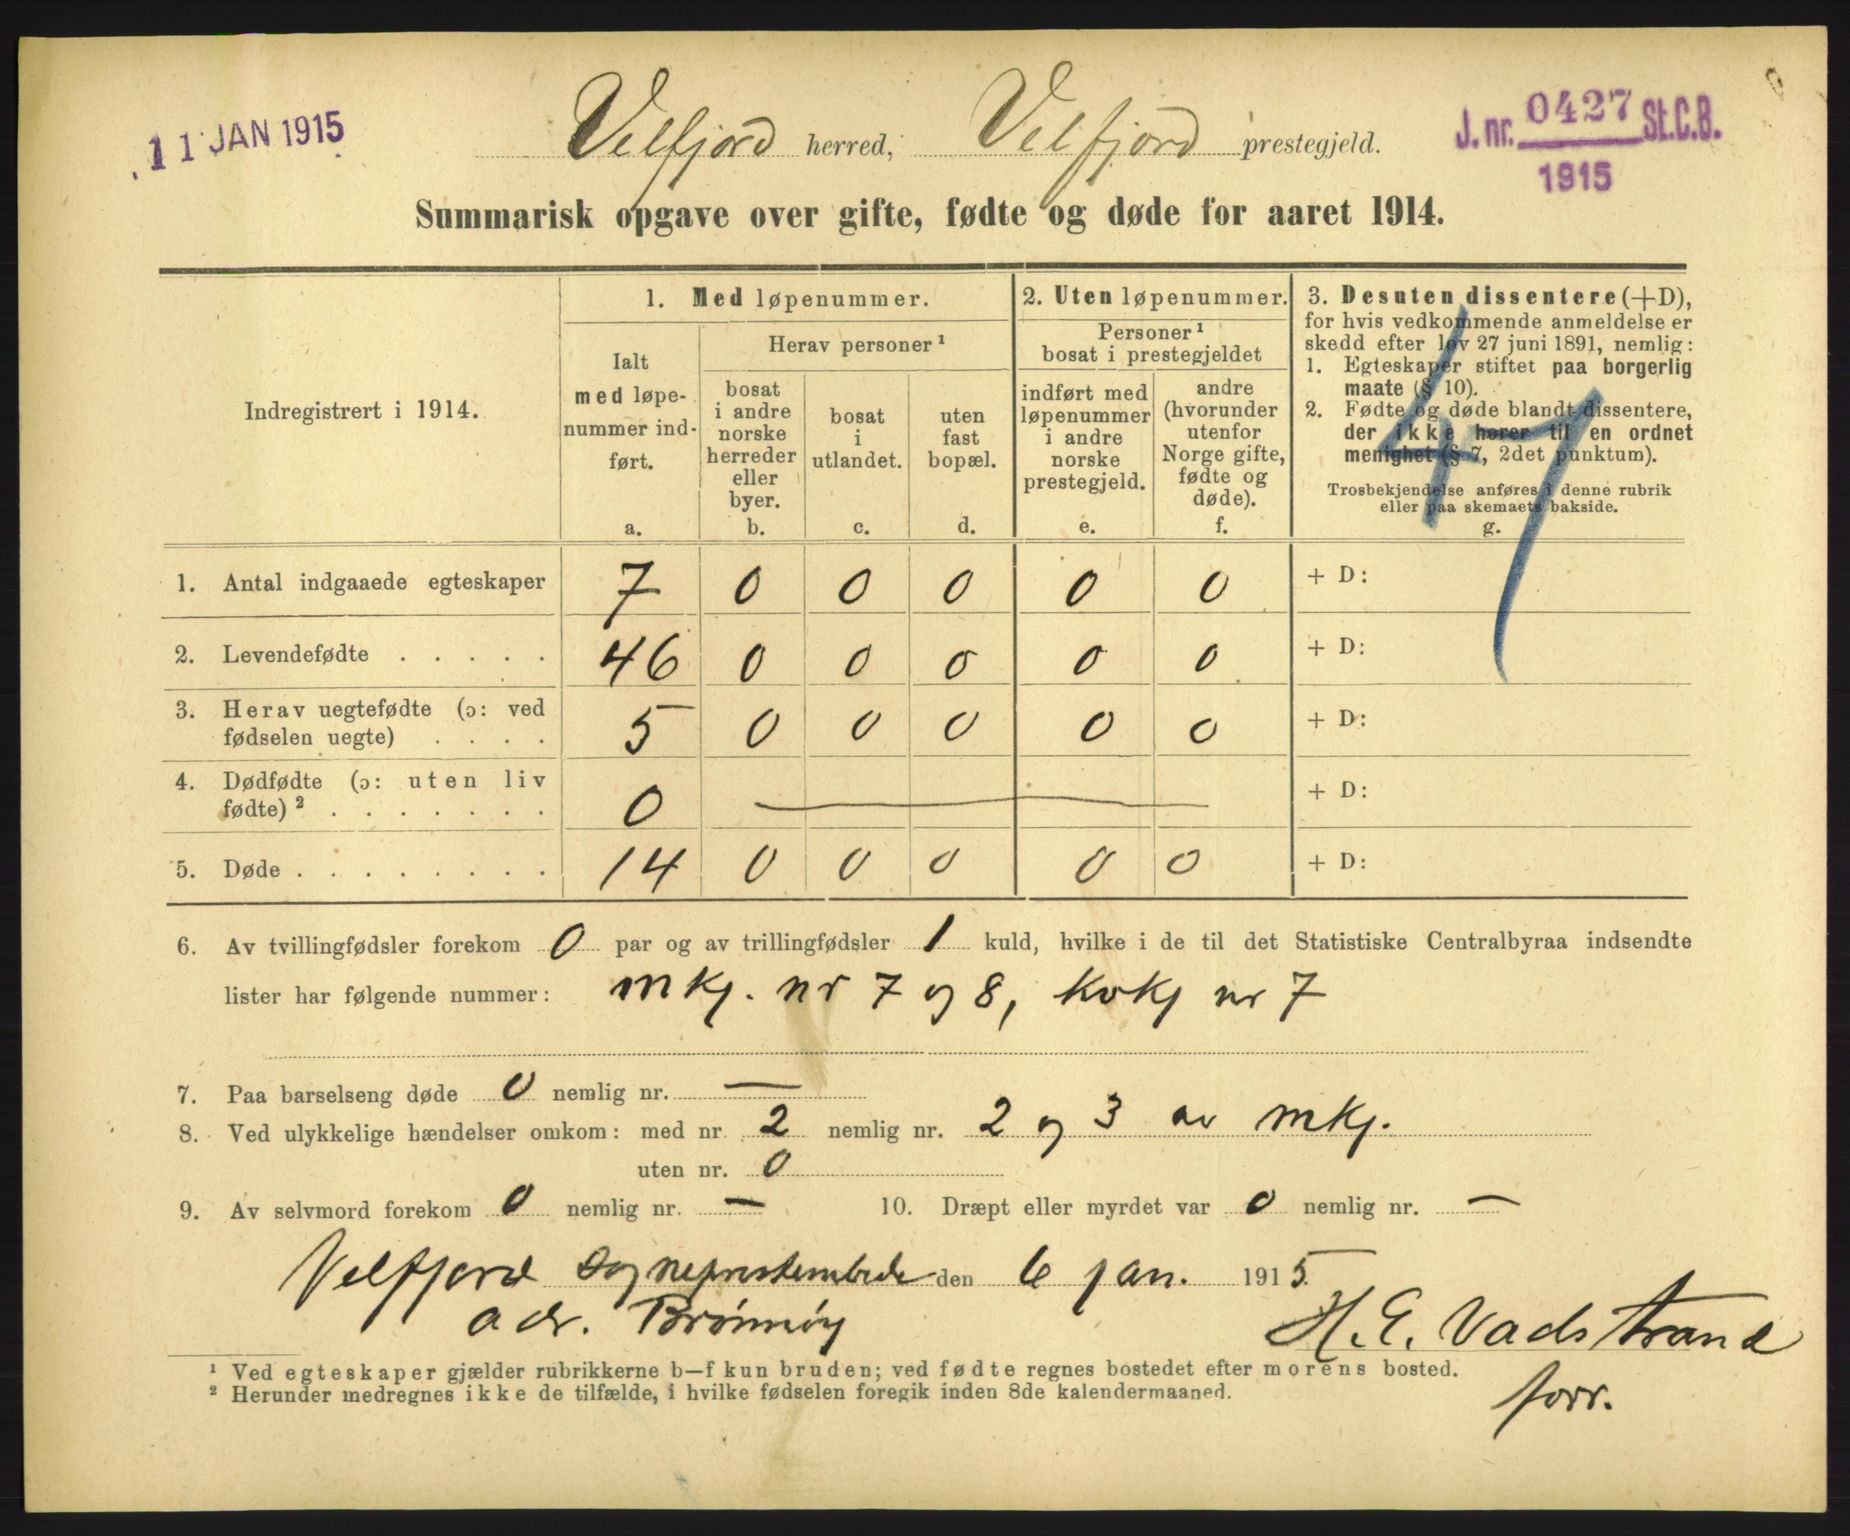 11 JAN 1915
Velfjord herred, Velfjord prestegjeld.
J. nr. 0427 St.C.B.
1915
Summarisk opgave over gifte, fødte og døde for aaret 1914.
Indregistrert i 1914.
1. Med løpenummer.
Ialt
med løpe-
nummer ind-
ført.
a.
Herav personer ¹
bosat
i andre
norske
herreder
eller
byer.
b.
bosat
i
utlandet.
c.
uten
fast
bopæl.
d.
2. Uten løpenummer.
Personer ¹
bosat i prestegjeldet
indført med
løpenummer
i andre
norske
prestegjeld.
e.
andre
(hvorunder
utenfor
Norge gifte,
fødte og
døde).
f.
3. Desuten dissentere (+D),
for hvis vedkommende anmeldelse er
skedd efter lov 27 juni 1891, nemlig:
1. Egteskaper stiftet paa borgerlig
maate (§ 10).
2. Fødte og døde blandt dissentere,
der ikke hører til en ordnet
menighet (§ 7, 2det punktum).
Trosbekjendelse anføres i denne rubrik
eller paa skemaets bakside.
g.
47
1. Antal indgaaede egteskaper 7 0 0 0 0 0 + D:
2. Levendefødte . . . . . 46 0 0 0 0 0 + D:
3. Herav uegtefødte (ɔ: ved
fødselen uegte) . . . . 5 0 0 0 0 0 + D:
4. Dødfødte (ɔ: uten liv
fødte) ² . . . . . . . 0 — + D:
5. Døde . . . . . . . . 14 0 0 0 0 0 + D:
6. Av tvillingfødsler forekom 0 par og av trillingfødsler 1 kuld, hvilke i de til det Statistiske Centralbyraa indsendte
lister har følgende nummer: mkj. nr 7 og 8, kvkj nr 7
7. Paa barselseng døde 0 nemlig nr. —
8. Ved ulykkelige hændelser omkom: med nr. 2 nemlig nr. 2 og 3 av mkj.
uten nr. 0
9. Av selvmord forekom 0 nemlig nr. — 10. Dræpt eller myrdet var 0 nemlig nr. —
Velfjord Sogneprestembede den 6 jan. 1915.
adr. Brønnøy
H. E. Vadstrand
forr.
¹ Ved egteskaper gjælder rubrikkerne b—f kun bruden; ved fødte regnes bostedet efter morens bosted.
² Herunder medregnes ikke de tilfælde, i hvilke fødselen foregik inden 8de kalendermaaned.